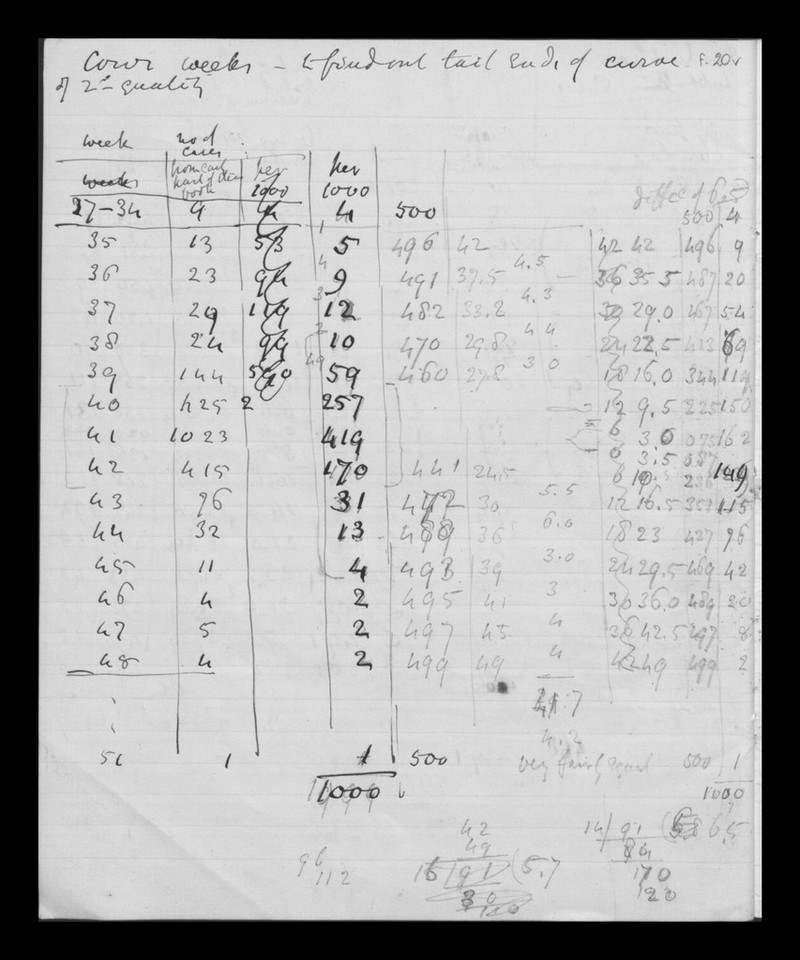 weeks - to find out tail ends of curve F. 20v
of 2nd quality
week no of cases
weeks from each part of the book per 1000 per 1000
37-34 9 4 500 500 4
35 13 53 5 496 42 42 42 496 9
36 23 94 9 491 37.5 4.5 36 35 5 487 20
37 29 119 12 482 33.2 4.3 30 29.0 467 54
38 24 99 10 470 29.8 4 4 24 22.5 413 69
39 144 590 59 460 27.8 3 0 18 16.0 344 119
40 625 2 257 12 9.5 225 150
41 1023 419 6 3 0 075 162
0 3.5 087
42 415 170 441 24.5 6 10. 236 149
43 76 31 472 30 5.5 12 16.5 351 115
44 32 13 489 36 6.0 18 23 427 96
45 11 4 493 39 3.0 24 29.5 469 42
46 4 2 495 41 3 30 36.0 489 20
47 5 2 497 45 4 36 42.5 497 8
48 4 2 499 49 4 42 49 499 2
4.2
51 1 1 500 very fairly equal 500 1
1000 1000
42 14/ 91 ( 6.5
49 84
96 16/91 (5.7 70
112 80 20